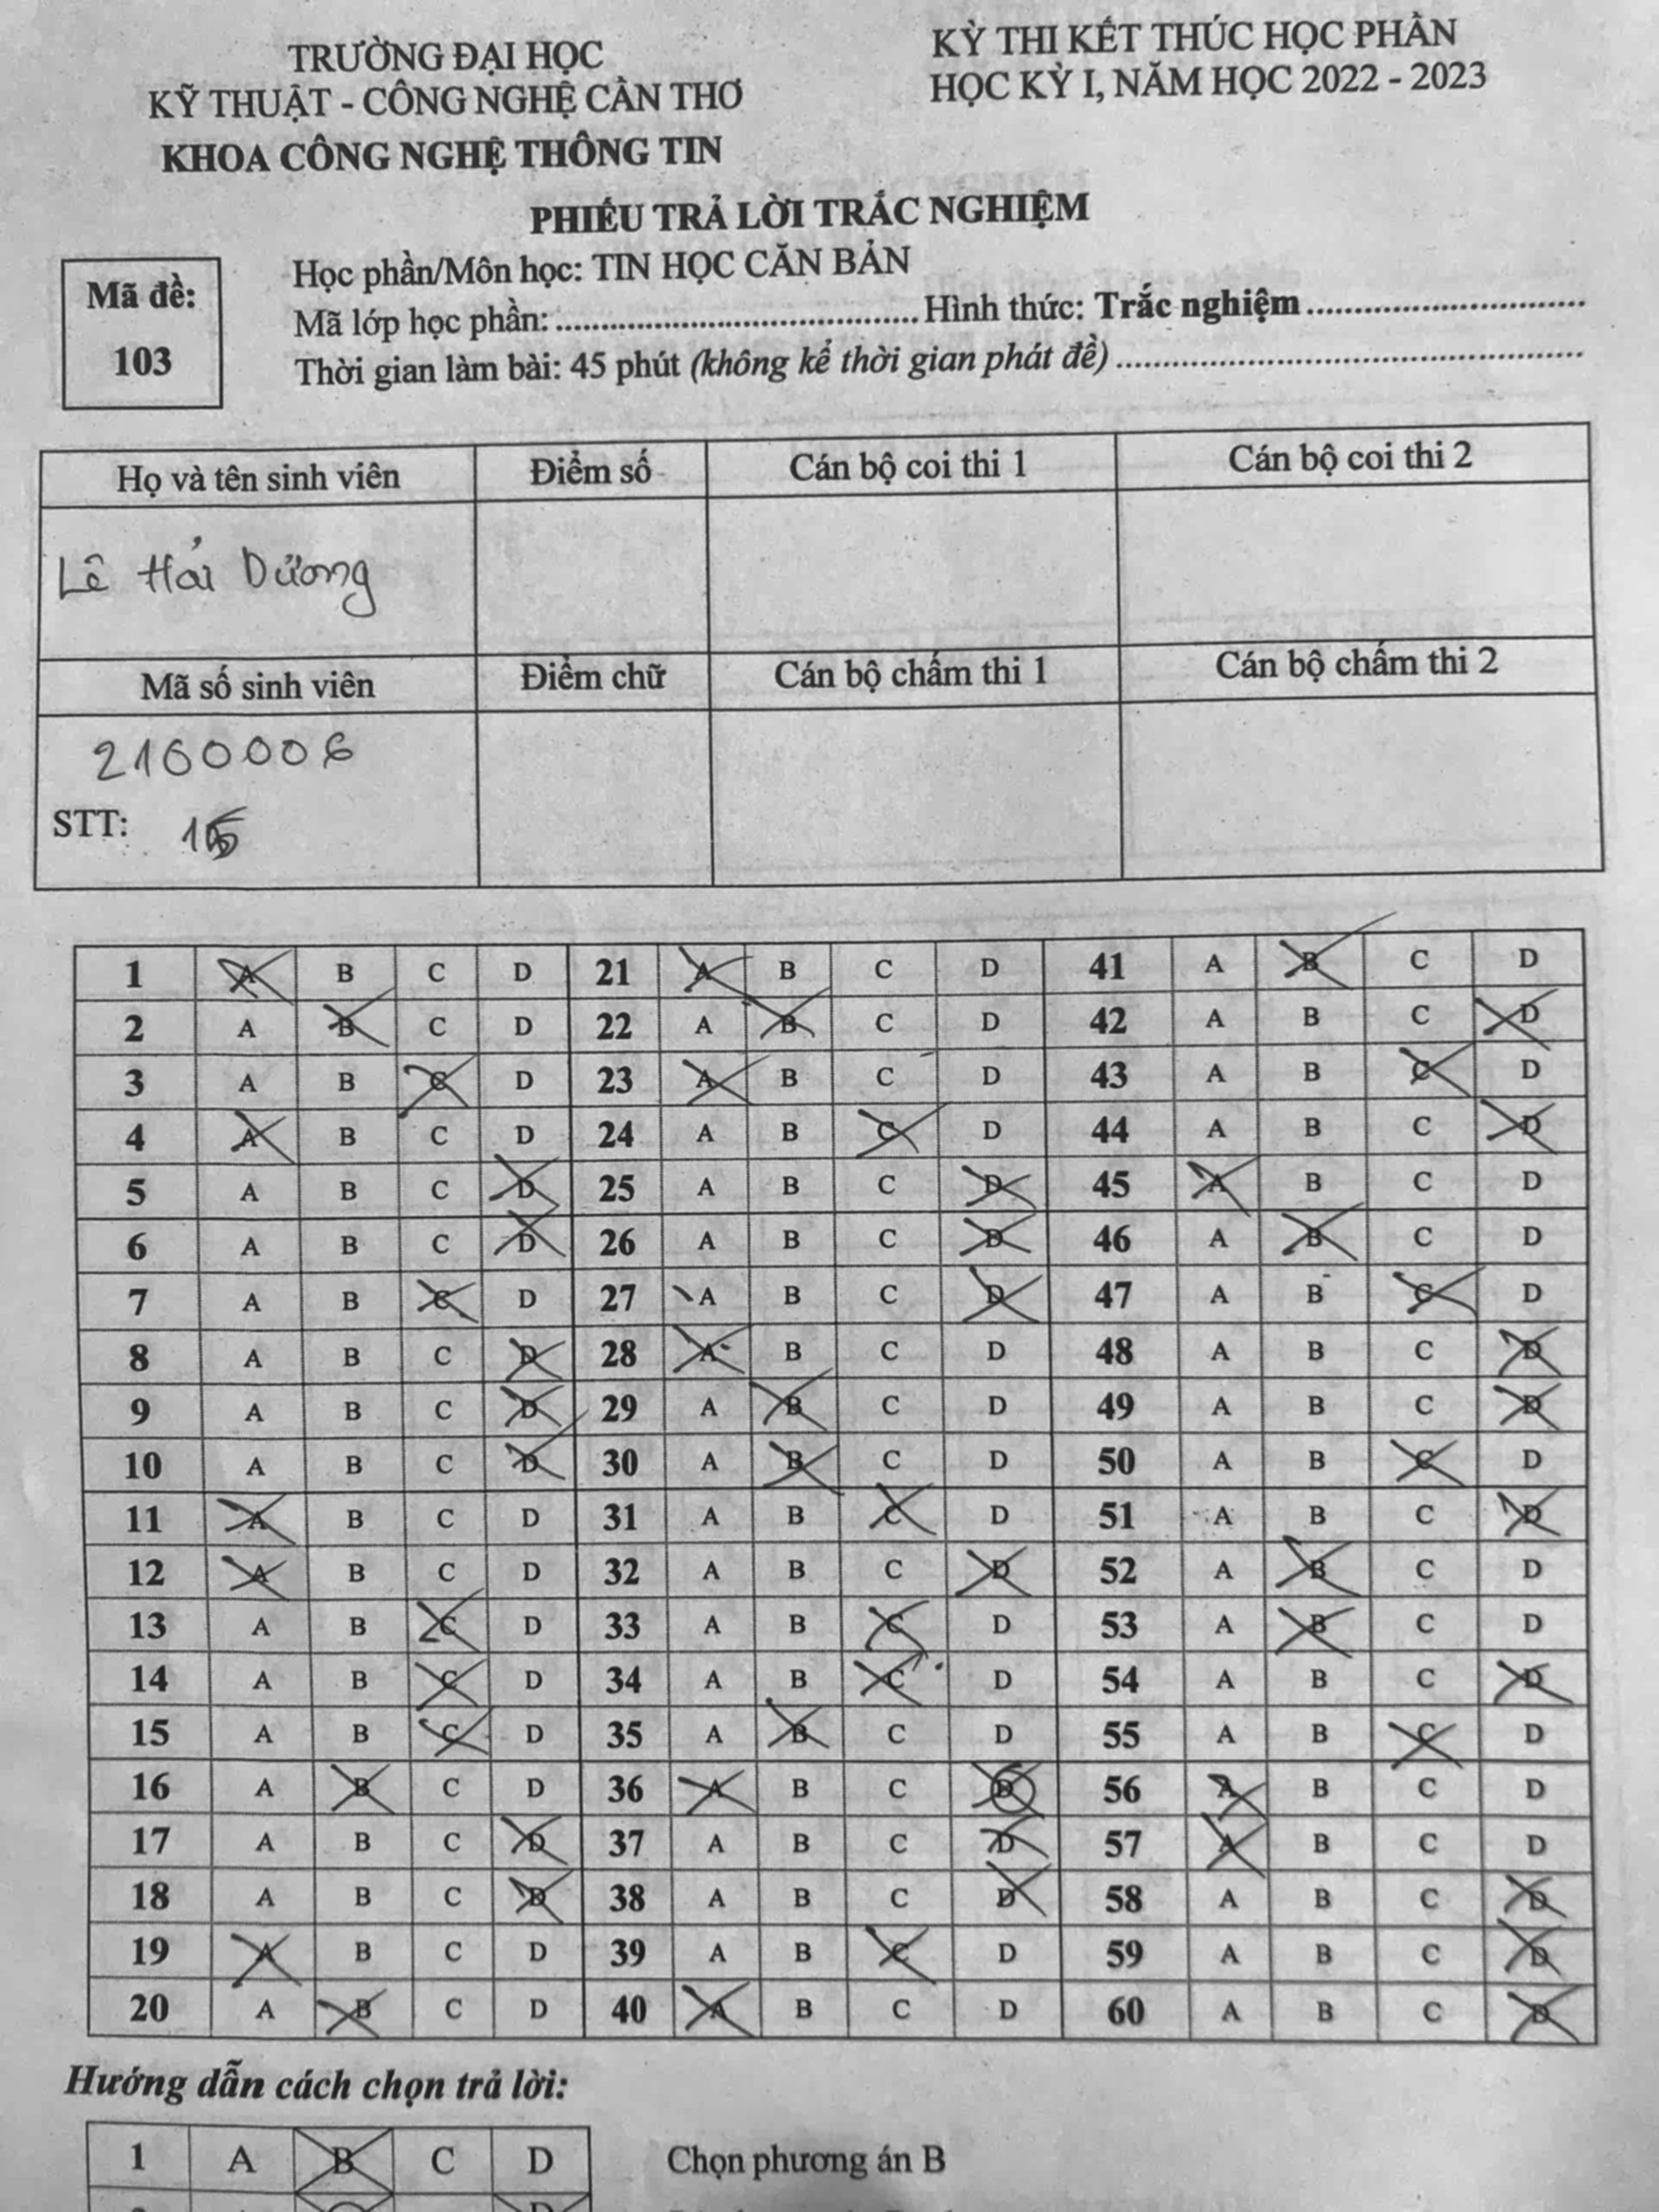 TRƯỜNG ĐẠI HỌC
KỸ THUẬT - CÔNG NGHỆ CẦN THƠ
KHOA CÔNG NGHỆ THÔNG TIN
KỲ THI KẾT THÚC HỌC PHẦN
HỌC KỲ I, NĂM HỌC 2022 - 2023
PHIẾU TRẢ LỜI TRẮC NGHIỆM
Mã đề:
103
Học phần/Môn học: TIN HỌC CĂN BẢN
Mã lớp học phần: ........................................ Hình thức: Trắc nghiệm ..............................
Thời gian làm bài: 45 phút (không kể thời gian phát đề) ..................................................
Họ và tên sinh viên Điểm số Cán bộ coi thi 1 Cán bộ coi thi 2
Lê Hải Dương
Mã số sinh viên Điểm chữ Cán bộ chấm thi 1 Cán bộ chấm thi 2
2100006
STT: 15
1 A B C D 21 A B C D 41 A B C D
2 A B C D 22 A B C D 42 A B C D
3 A B C D 23 A B C D 43 A B C D
4 A B C D 24 A B C D 44 A B C D
5 A B C D 25 A B C D 45 A B C D
6 A B C D 26 A B C D 46 A B C D
7 A B C D 27 A B C D 47 A B C D
8 A B C D 28 A B C D 48 A B C D
9 A B C D 29 A B C D 49 A B C D
10 A B C D 30 A B C D 50 A B C D
11 A B C D 31 A B C D 51 A B C D
12 A B C D 32 A B C D 52 A B C D
13 A B C D 33 A B C D 53 A B C D
14 A B C D 34 A B C D 54 A B C D
15 A B C D 35 A B C D 55 A B C D
16 A B C D 36 A B C D 56 A B C D
17 A B C D 37 A B C D 57 A B C D
18 A B C D 38 A B C D 58 A B C D
19 A B C D 39 A B C D 59 A B C D
20 A B C D 40 A B C D 60 A B C D
Hướng dẫn cách chọn trả lời:
1 A B C D Chọn phương án B